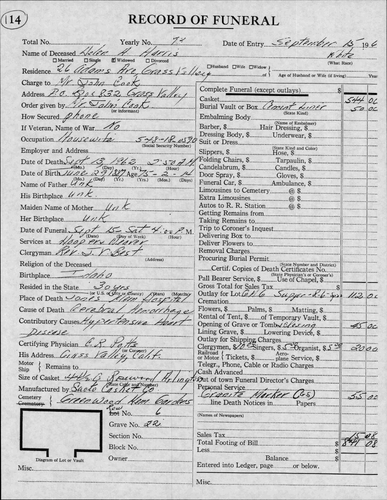 14
RECORD OF FUNERAL
Total No. Yearly No. 72 Date of Entry September 15 196
Name of Deceased Helen M. Harris White
Married Single Widowed Divorced (What Race)
Residence 26 Adams Ave Grass Valley Husband Wife Widow of Age of Husband or Wife (if living) Years
Charge to Mr John Cook
Address P.O. Box 832 Grass Valley
Order given by Mr John Cook
How Secured phone
If Veteran, Name of War No
Occupation Housewife 548-18-0590
(Social Security Number)
Employer and Address
Date of Death Sept 13 1962 2:50 A.M.
Date of Birth June 29 1887 Age 75-2-14
Name of Father unk
His Birthplace unk
Maiden Name of Mother unk
Her Birthplace unk
Date of Funeral Sept 15 Sat 4:00 P.M.
Services at Hooper & Weaver
Clergyman Rev. J.V. Best
(Address)
Birthplace Idaho
Resided in the State 30 yrs
Place of Death Jones Mem Hospital
Cause of Death Cerebral Hemorrhage
Contributory Causes Hypertensive Heart
Disease
Certifying Physician
His Address Grass Valley Calif.
Motor
Ship Remains to
Size of Casket
Manufactured by Casket Co
Cemetery Greenwood Mem Gardens
Row
Lot No. 6
Grave No. 22
Section No.
Block No.
Owner
Diagram of Lot or Vault
Misc.
Complete Funeral (except outlays) $
Casket 544 00
Burial Vault or Box Cement Liner 50 00
(State Kind)
Embalming Body
(Name of Embalmer)
Barber, $ Hair Dressing, $
Dressing Body, $ Underwear, $
Suit or Dress
(State Kind and Color)
Slippers, $ Hose, $
Folding Chairs, $ Tarpaulin, $
Candelabrum, $ Candles, $
Door Spray, $ Gloves, $
Funeral Car, $ Ambulance, $
Limousines to Cemetery @ $
Extra Limousines @ $
Autos to R. R. Station @ $
Getting Remains from
Taking Remains to
Trip to Coroner's Inquest
Delivering Box to
Deliver Flowers to
Removal Charges
Procuring Burial Permit
(Name District)
Certif. Copies of Death Certificates No.
(State Physician's or Coroner's)
Pall Bearer Service, $ Use of Chapel, $
Gross Total for Sales Tax
Outlay for Lot
Cremation
Flowers, $ Palms, $ Matting, $
Rental of Tent, $ of Temporary Vault, $
Opening of Grave or Tomb 45 00
Lining Grave, $ Lowering Device, $
Outlay for Shipping Charges
Clergyman, $ Singers, $5 Organist, $ 20 00
Railroad
or Motor Tickets, $ Aeroplane Service, $
Telegr., Phone, Cable or Radio Charges
Cash Advanced
Out of town Funeral Director's Charges
Personal Service
Granite Marker 55 00
line Death Notices in Papers
(Names of Newspapers)
Sales Tax
Total Footing of Bill
Less
Balance
Entered into Ledger, page or below.
Misc.